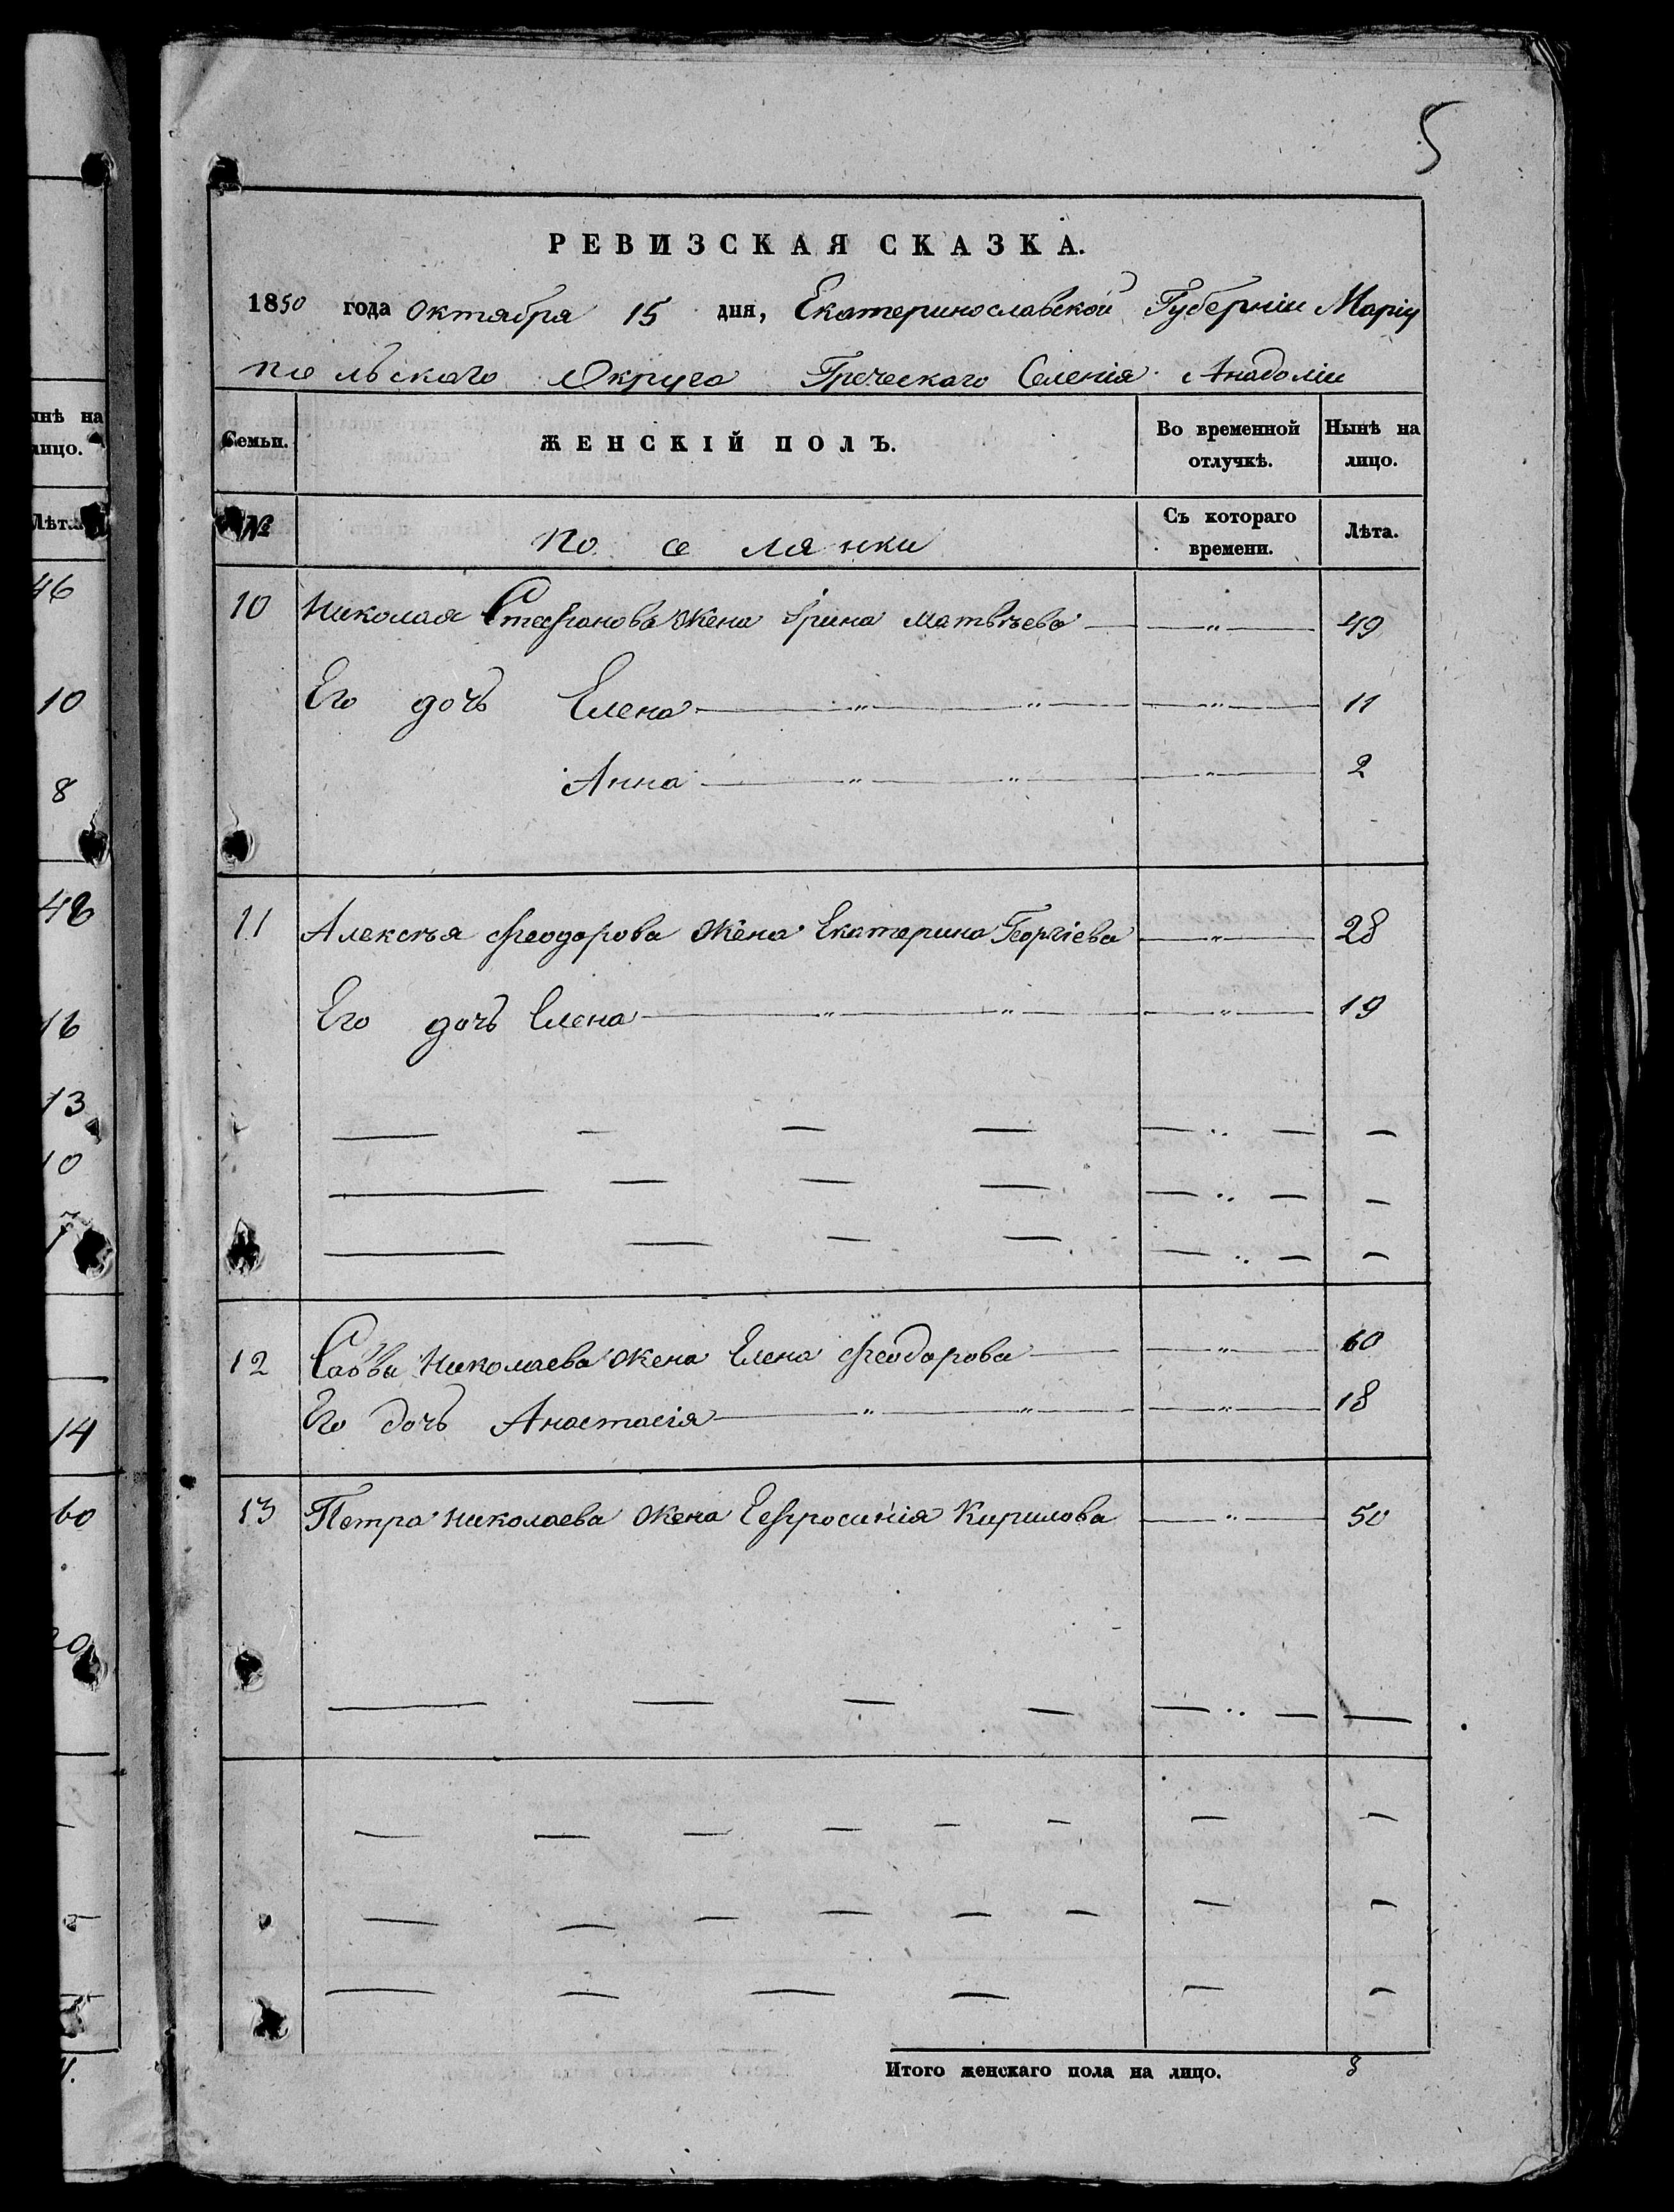 5
РЕВИЗСКАЯ СКАЗКА.
1850 года Октября 15 дня, Екатеринославской Губернiи Марiу
польскаго Округа Греческаго Селенiя Анадолiи
Семьи. ЖЕНСКIЙ ПОЛЪ. Во временной отлучкѣ. Нынѣ на лицо.
№ Поселянки Съ котораго времени. Лѣта.
10 Николая Стефанова жена Ирина Матвѣева — " — 49
Его дочь Елена — " — " — — " — 11
Анна — " — " — — " — 2
11 Алексѣя Феодорова жена Екатерина Георгiева — " — 28
Его дочь Елена — " — " — — " — 19
12 Савва Николаева жена Елена Феодорова — — " — 60
Его дочь Анастасiя — " — " — — " — 18
13 Петра Николаева жена Ефросинiя Кирилова — " — 50
Итого женскаго пола на лицо. 8
инѣ на
лицо.
Лѣта.
46
10
8
48
16
13
10
7
14
60